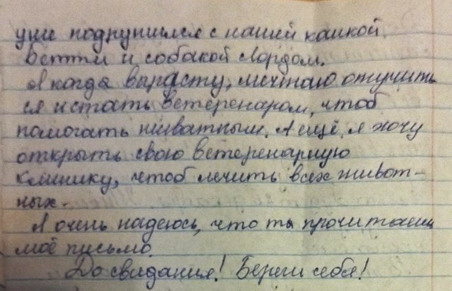 уже подружился с нашей кошкой
Бетти и собакой Лордом.
А когда вырасту, мечтаю отучить
ся и стать ветеренаром, чтоб
помогать животным. А ещё, я хочу
открыть свою ветеренарную
клинику, чтоб лечить всех живот-
ных.
Я очень надеюсь, что ты прочитаешь
моё письмо.
До свидания! Береги себя!